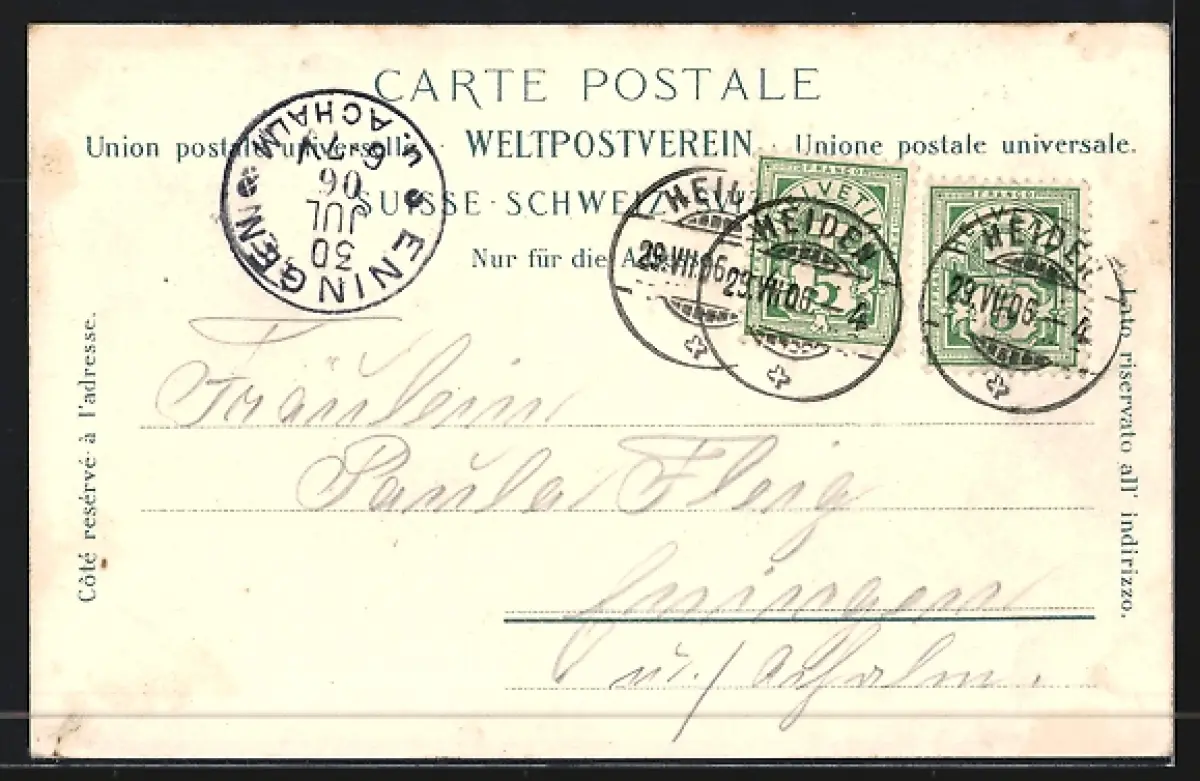 CARTE POSTALE
Union postale universelle. WELTPOSTVEREIN Unione postale universale.
SUISSE · SCHWEIZ
Nur für die
ENINGEN
u. ACHALM
30
JUL
06
HEIDEN
29.VII.06
HEIDEN
29.VII.06–4
HEIDEN
29.VII.06–4
FRANCO
HELVETIA
5
FRANCO
HELVETIA
5
Côté resérvé à l'adresse.
Lato riservato all' indirizzo.
Fräulein
Paula Fleig
Eningen
u./Achalm.